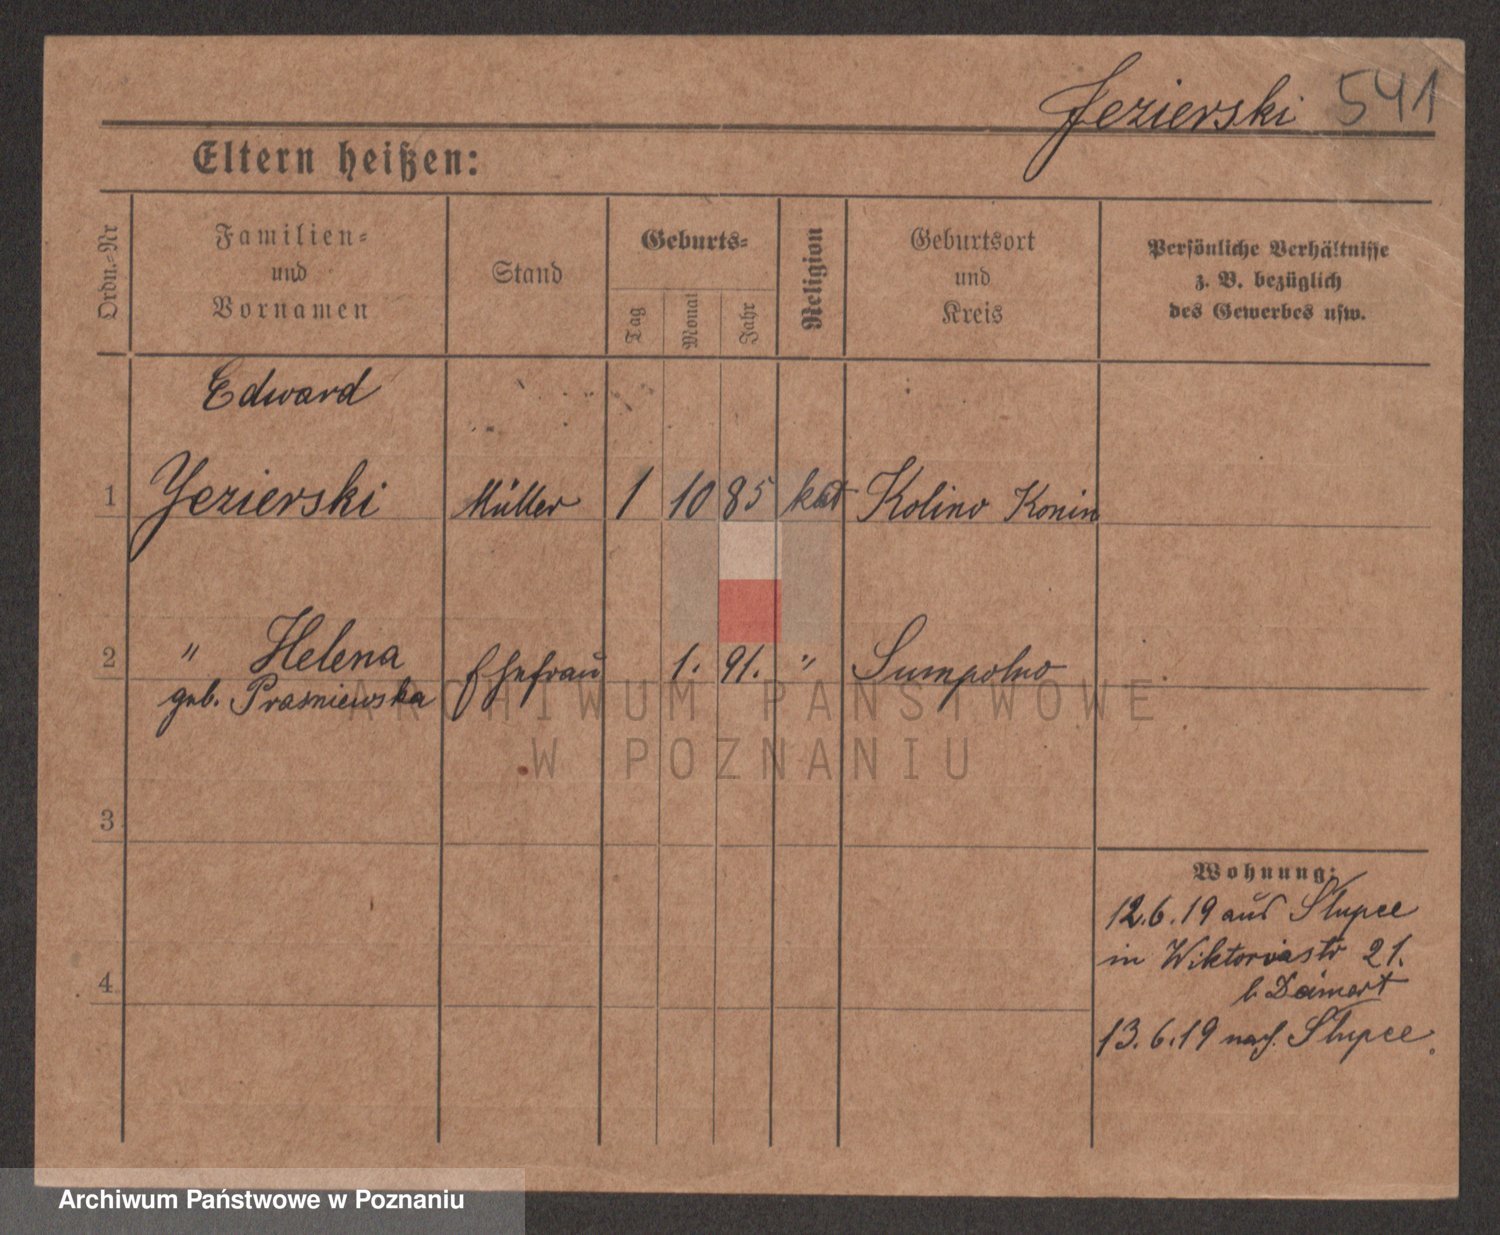 Jezierski 541
Eltern heißen:
Ordn.=Nr
Familien=
und
Vornamen
Stand
Geburts=
Tag
Monat
Jahr
Religion
Geburtsort
und
Kreis
Persönliche Verhältnisse
z. B. bezüglich
des Gewerbes usw.
Edward
1 Jezierski Müller 1 10 85 kat Kolino Konin
2 " Helena Ehefrau 1. 91. " Sumpolno
geb. Prasniewska
3
4
Wohnung:
12.6.19 aus Slupce
in Wiktoriastr 21.
b.
13.6.19 nach Slupce.
ARCHIWUM PAŃSTWOWE
W POZNANIU
Archiwum Państwowe w Poznaniu